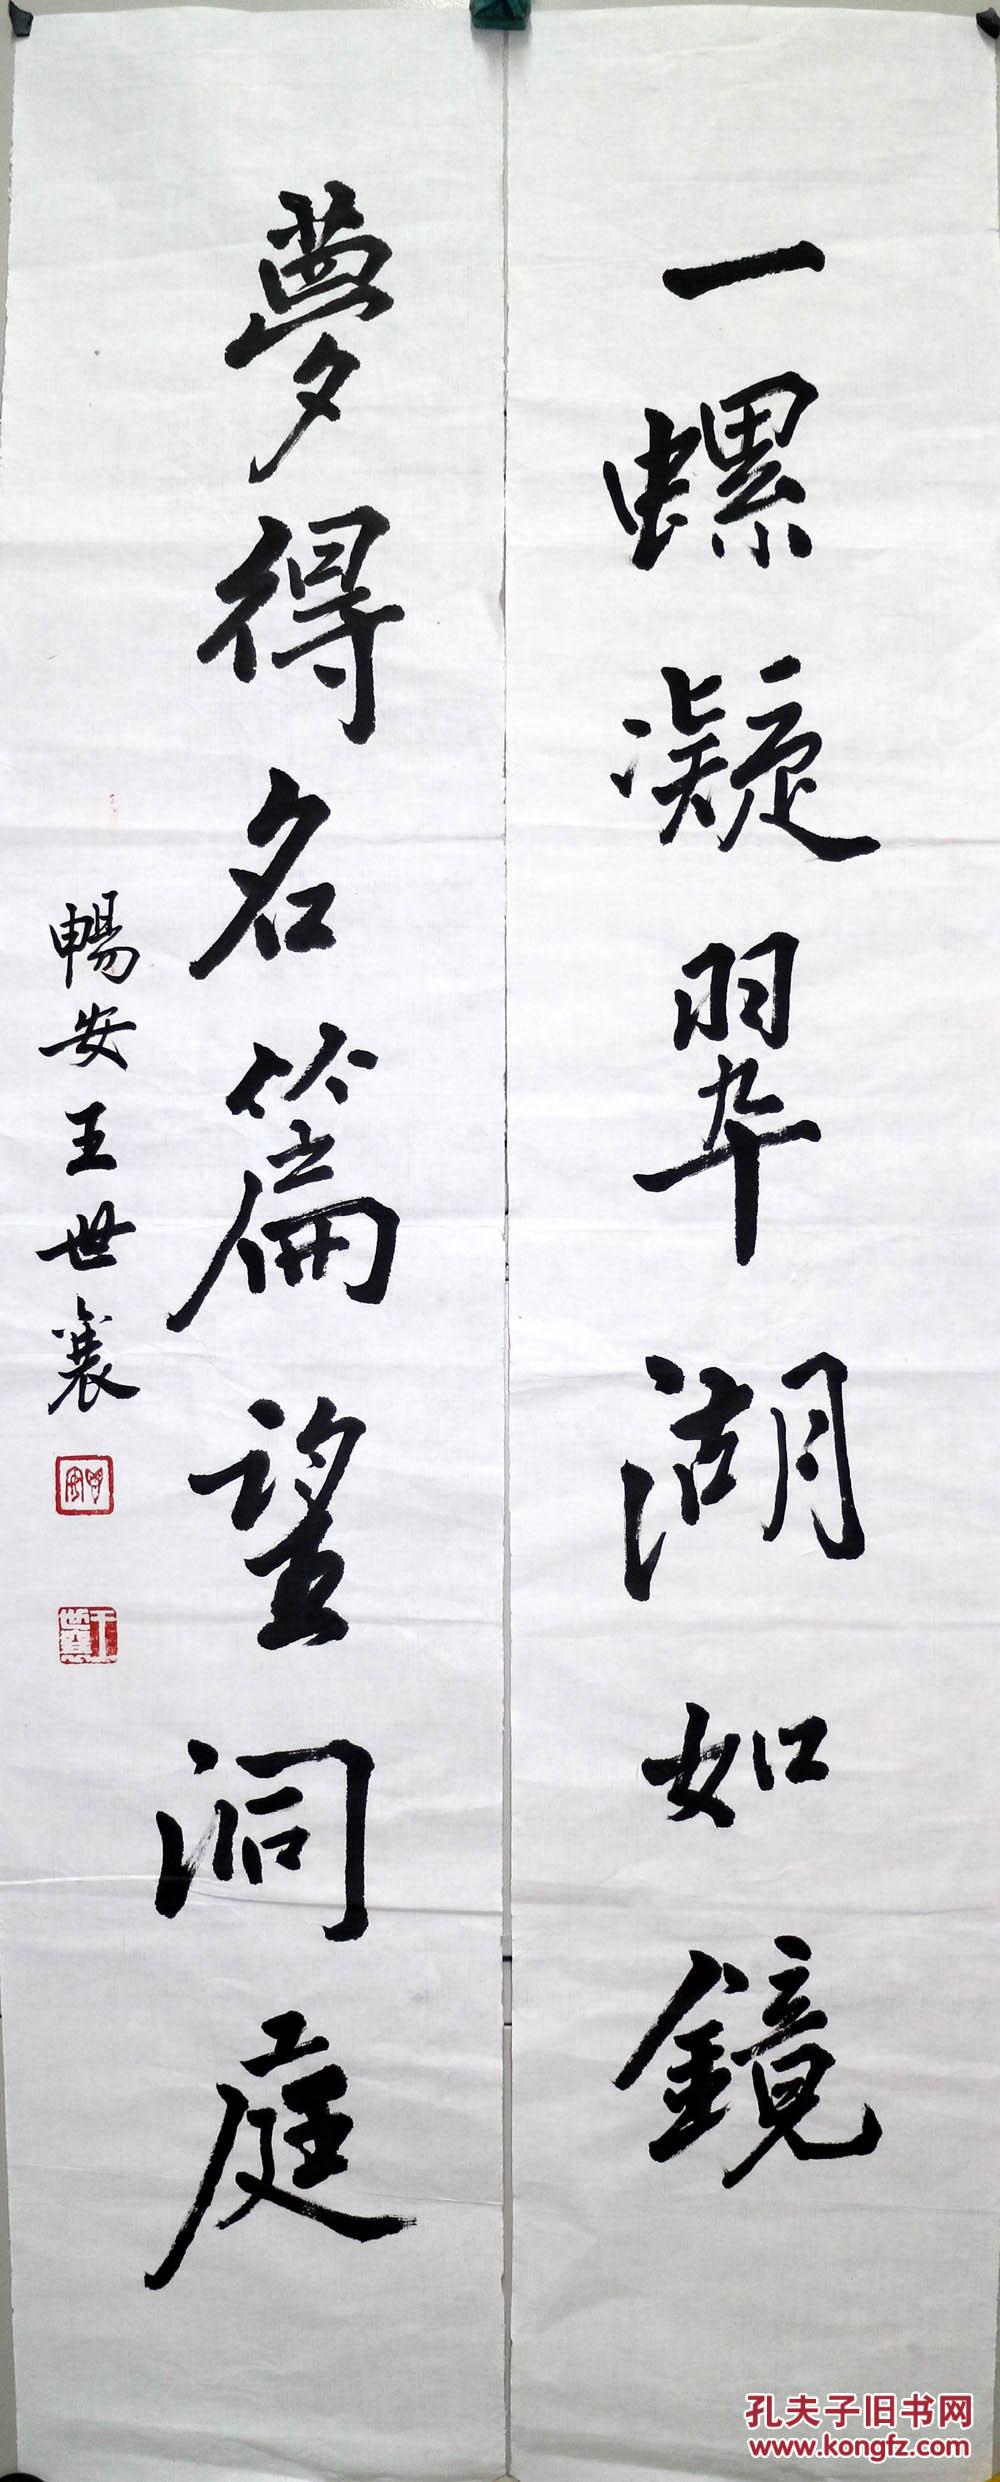 一螺凝翠湖如鏡
夢得名篇望洞庭
暢安王世襄
王世襄
孔夫子旧书网
www.kongfz.com